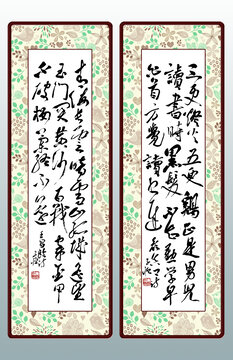 三更燈火五更雞正是男兒
讀書時黑髮不知勤學早
白首方悔讀書遲
青海長雲暗雪山孤城遙望
玉門關黃沙百戰穿金甲
不破樓蘭終不還